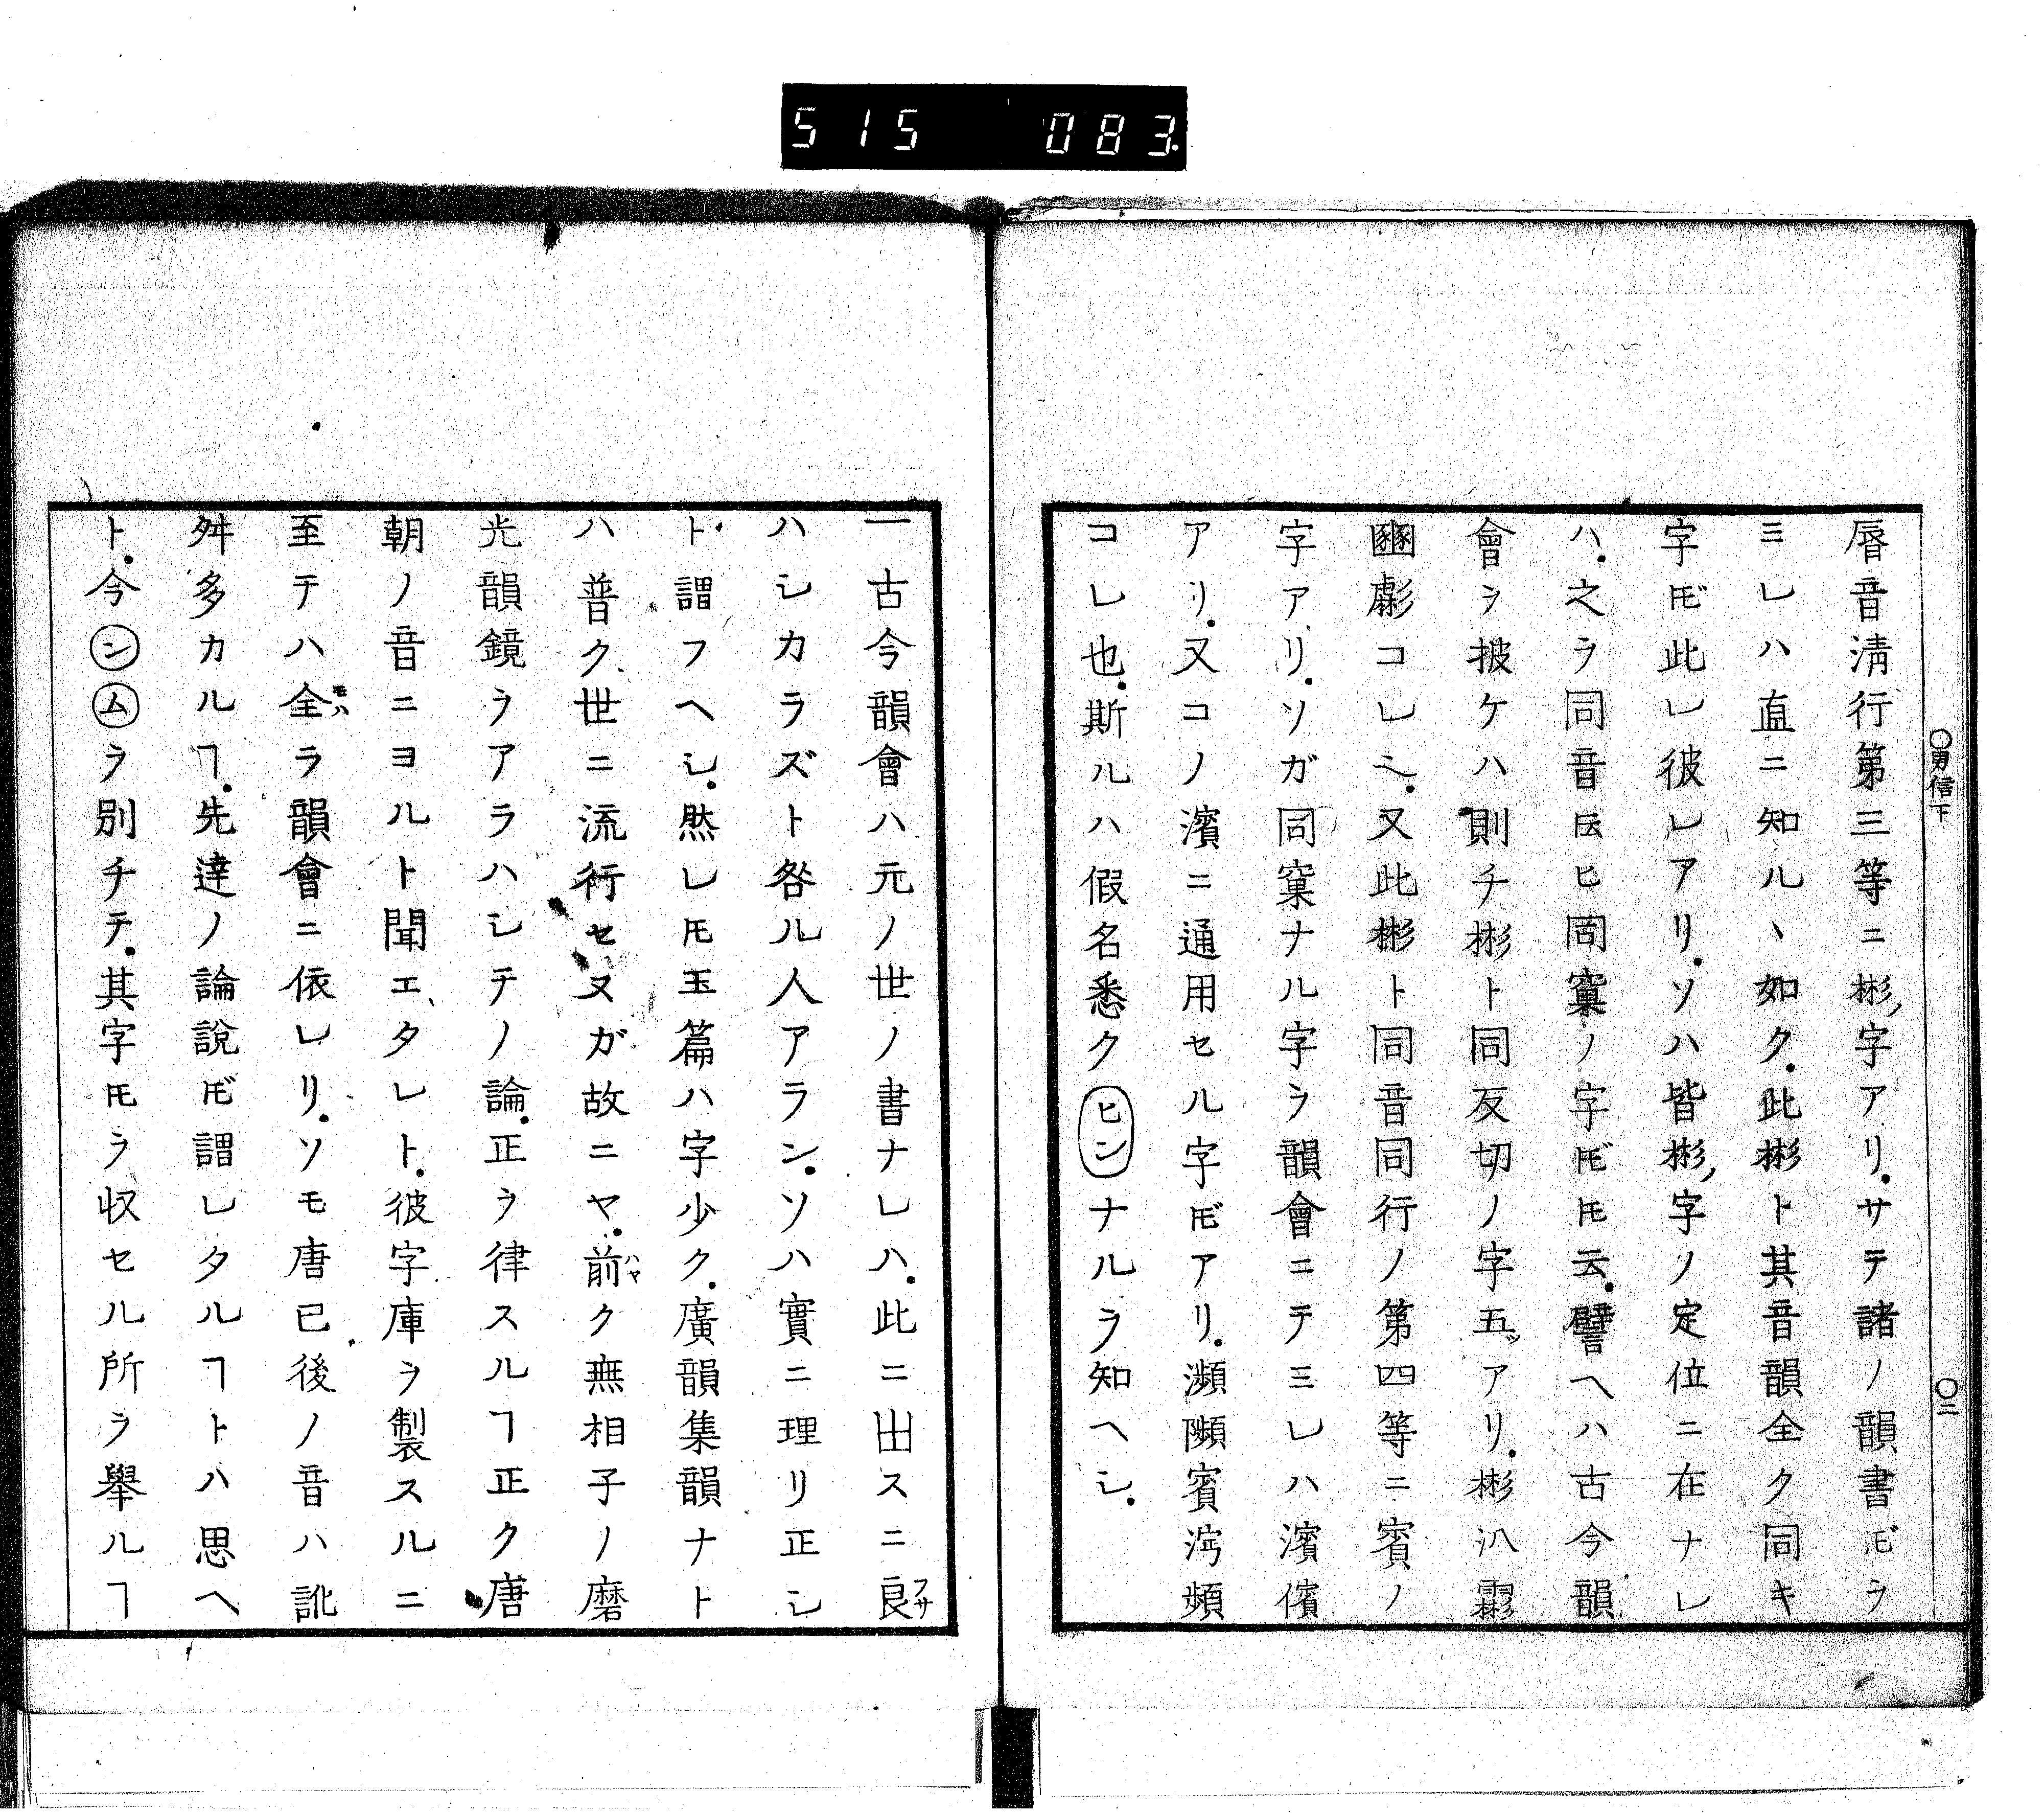 515 083
〇男信下
〇二
唇音清行第三等ニ彬字アリ.サテ諸ノ韻書𪜈ヲ
ミレハ直ニ知ルヽ如ク.此彬ト其音韻全ク同キ
字𪜈此レ彼レアリ.ソハ皆彬字ノ定位ニ在ナレ
ハ.之ラ同音云ヒ同窠ノ字𪜈𪜈云.譬ヘハ古今韻
會ヲ披ケハ則チ彬ト同反切ノ字五ツアリ.彬汃霦
豳虨コレ也.又此彬ト同音同行ノ第四等ニ賓ノ
字アリ.ソガ同窠ナル字ヲ韻會ニテミレハ濱儐
アリ.又コノ濱ニ通用セル字𪜈アリ.瀕顮賓涄頻
コレ也.斯ルハ假名悉クヒンナルヲ知ヘシ.
一古今韻會ハ元ノ世ノ書ナレハ.此ニ出スニ良フサ
ハシカラズト咎ル人アラン.ソハ實ニ理リ正シ
ト謂フヘシ.然レ𪜈玉篇ハ字少ク.廣韻集韻ナト
ハ普ク世ニ流行セヌガ故ニヤ.前ハヤク無相子ノ磨
光韻鏡ヲアラハシテノ論.正ヲ律スルヿ正ク唐
朝ノ音ニヨルト聞エタレト.彼字庫ヲ製スルニ
至テハ全モハラ韻會ニ依レリ.ソモ唐已後ノ音ハ訛
舛多カルヿ.先達ノ論說𪜈謂レタルヿトハ思ヘ
ト.今ンムヲ別チテ.其字𪜈ヲ収セル所ヲ舉ルヿ